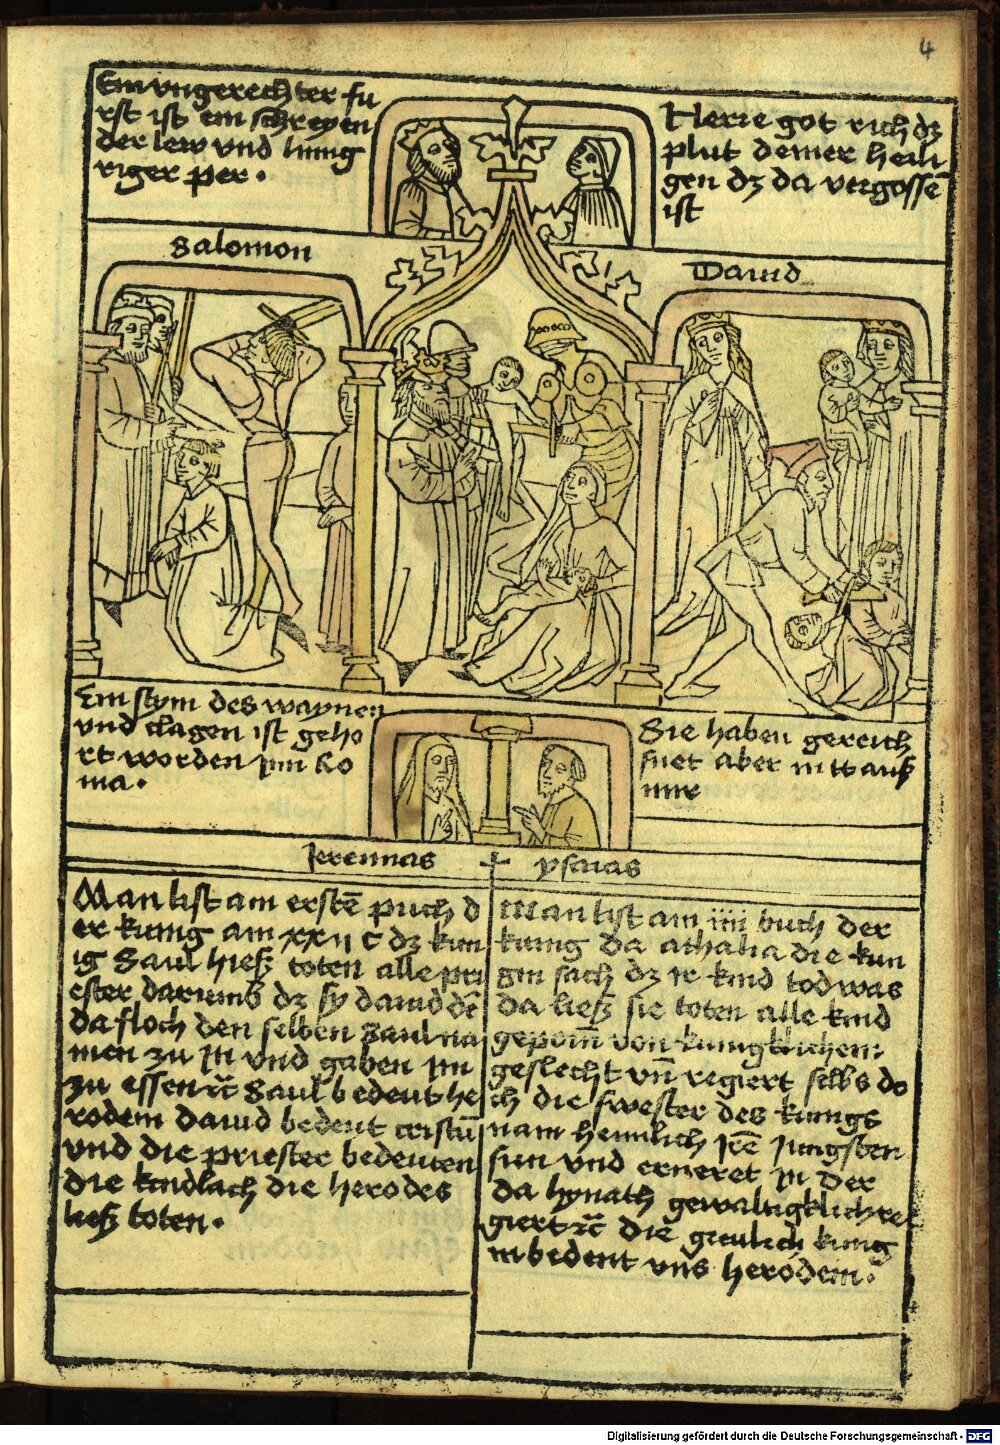 4
Ein vngerechter fu
rst ist ein schreyen
der lew vnd hung
riger per .
Herre got rich dz
plut deiner heili
gen dz da vergossē
ist
Salomon
Dauid
Ein stym des waynen
vnd clagen ist geho
rt worden jnn Ro
ma .
Sie haben gereich
snet aber nitt auß
mir
Jeremias
ysaias
Man list am erstē puch d
er kunig am xxij C dz kun
ig Saul hieß toten alle pri
ester darumb dz sy dauid dē
da floch den selben Saul na
men zu jn vnd gaben jm
zu essen rc Saul bedeut he
rodem Dauid bedeut cristū
vnd die priester bedeuten
die kindlach die herodes
ließ toten .
Man list am iiij buch der
kunig da athalia die kun
gin sach dz ir kind tod was
da ließ sie toten alle kind
geporn̄ von kungklichem
geslecht vn̄ regiert selbs do
ch die swester des kunigs
nam heimlich jrē jungsten
sun vnd erneret jn der
da hynach gewaltigklich re
giert rc die greulich kunig
in bedeut vns herodem .
Digitalisierung gefördert durch die Deutsche Forschungsgemeinschaft - DFG